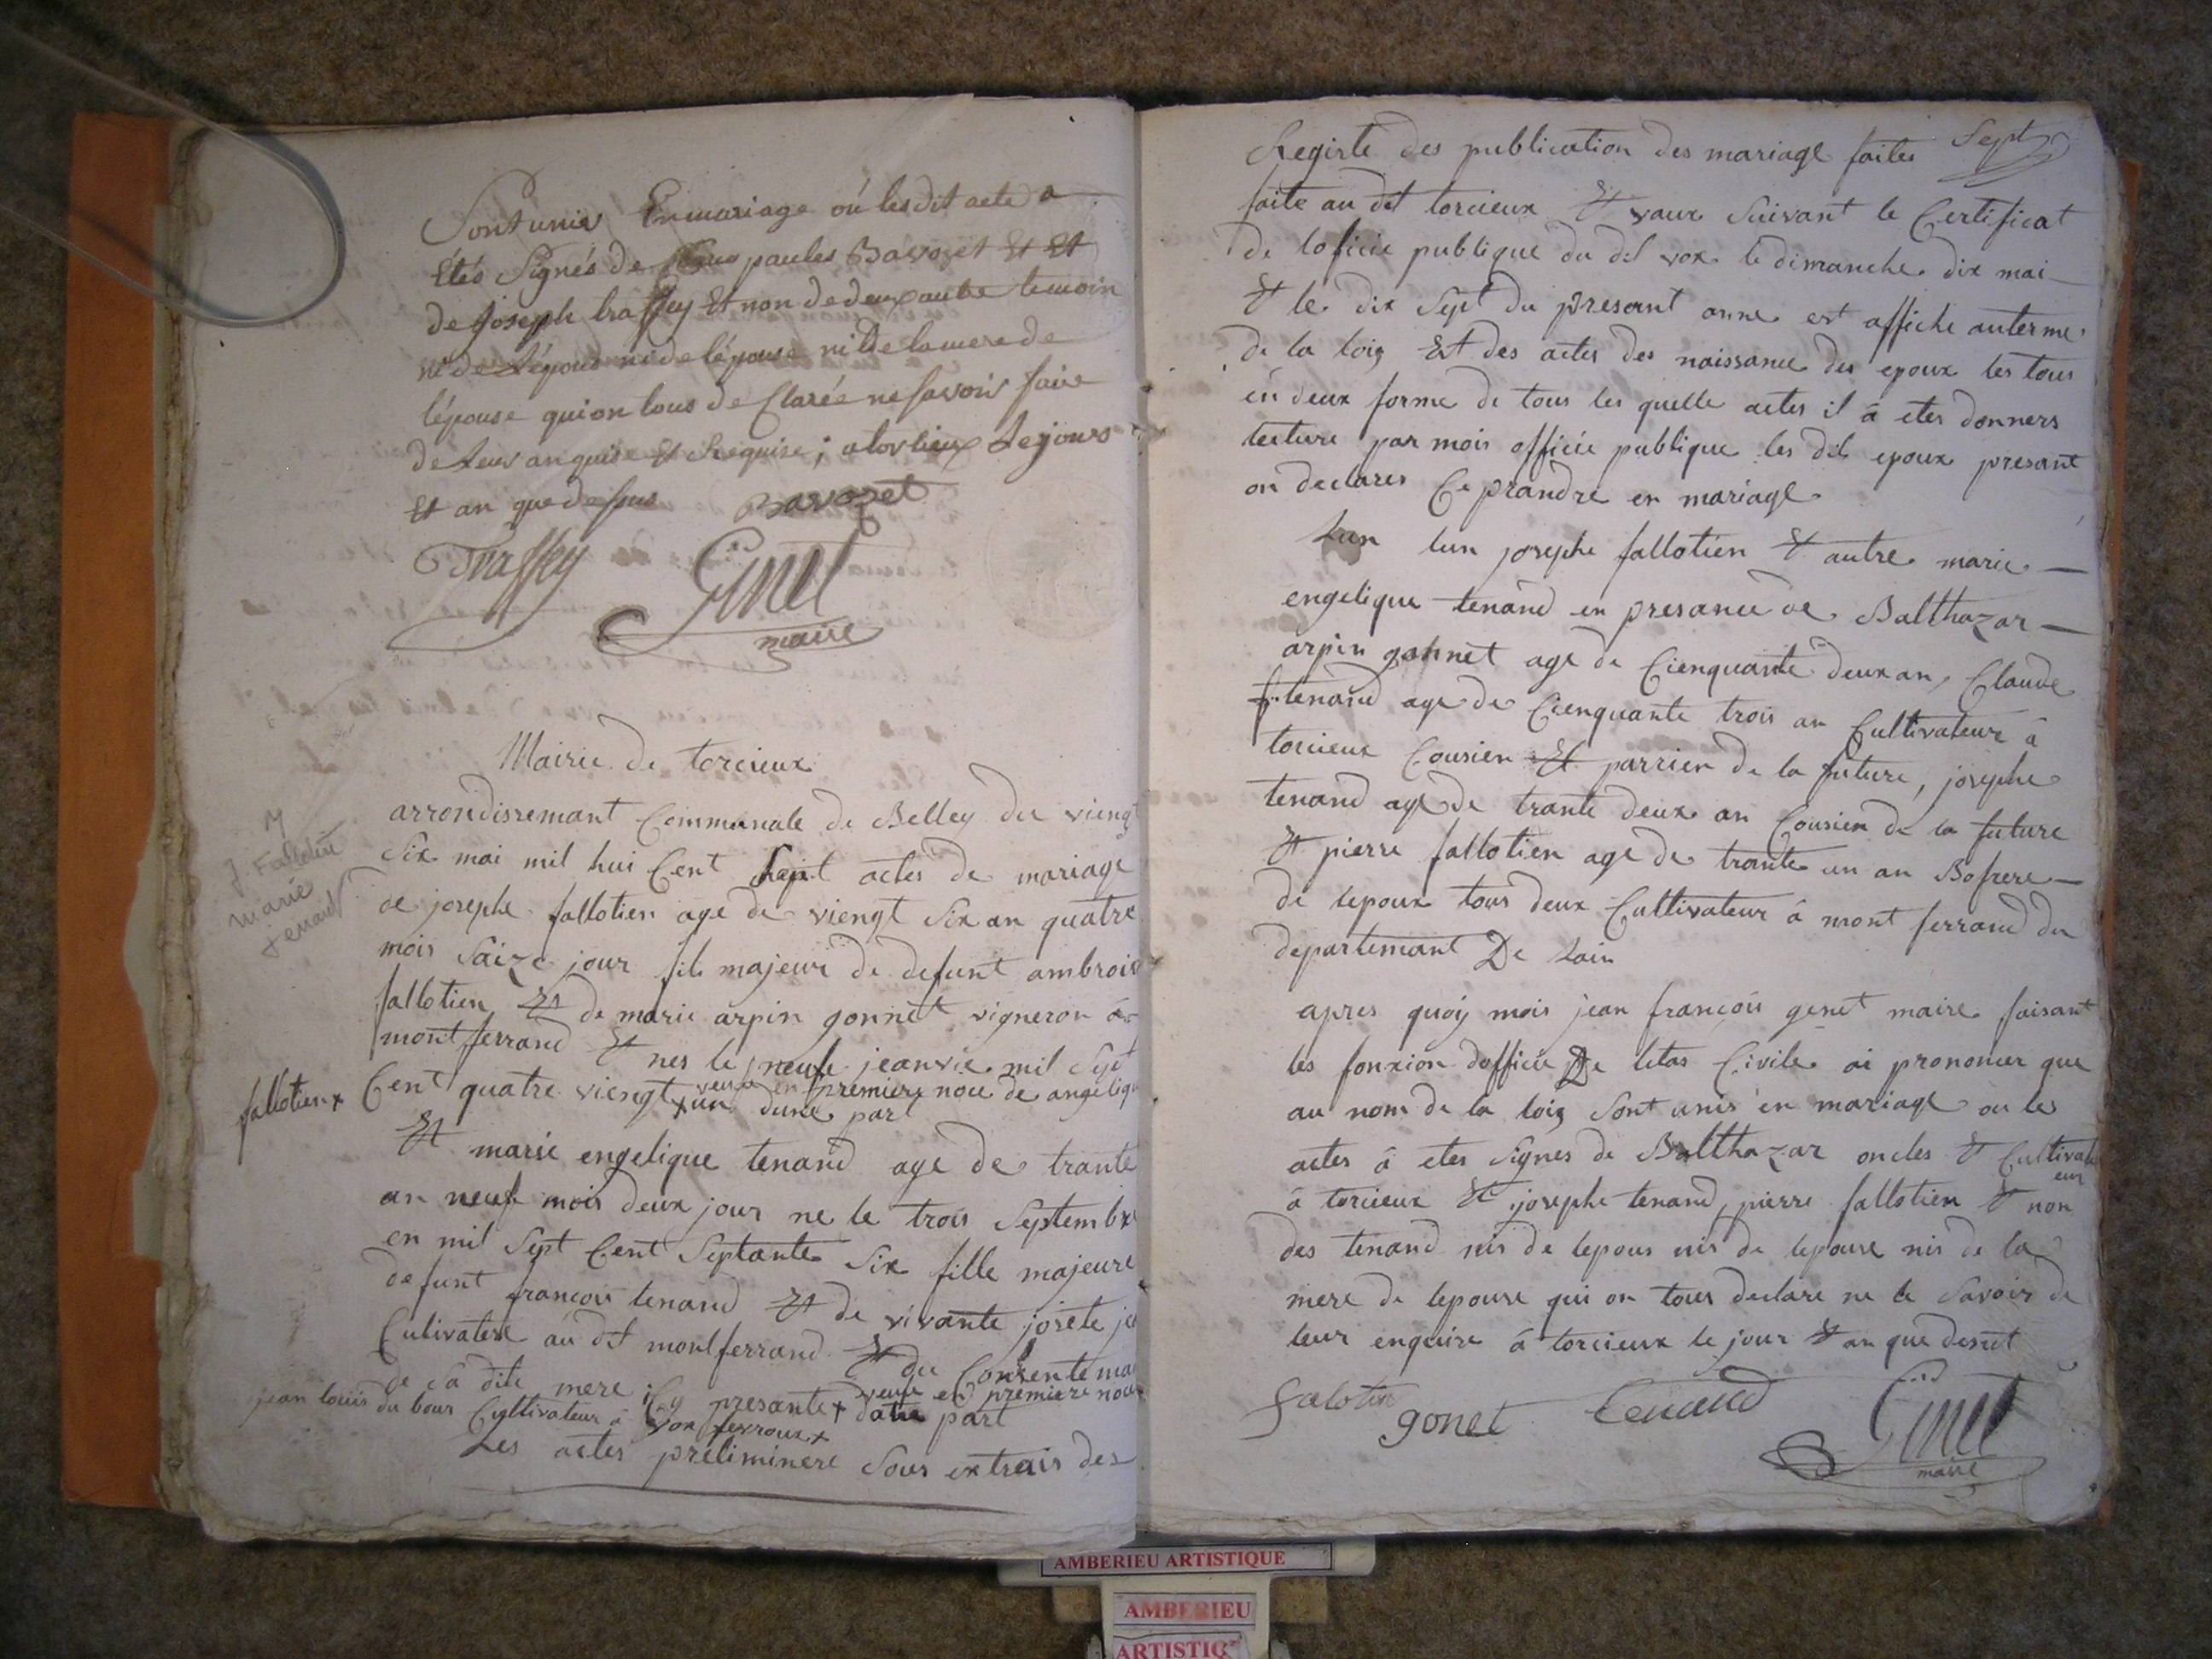 Sont unis En mariage où lesdit acte a
étés Signés de paules Bavozet Et Et
de joseph traffey Et non de deux autre temoin
ni de L'épous ni de l'épouse ni de la mere de
l'épouse qui on tous de Clarée ne savoir faire
de Leur anquise Et Requise; a torcieux Le jours
Et an que desus Bavozet
Traffey Ginet
maire
Mairie de torcieux
arrondissemant Communale de Belley du viengt
Six mai mil hui Cent Sept actes de mariage
de josephe fallotien age de viengt Six an quatre
mois Saize jour fils majeur de defunt ambrois
fallotien Et de marie arpin gonnet vigneron à
montferrand Et nes le neufe jeanvie mil Sept
Cent quatre viengt x un dune part
fallotien x veuve en premiere noce de angelique
Et marie engelique tenand age de trante
an neuf mois deux jour ne le trois Septembre
en mil Sept Cent Septante Six fille majeure
defunt françois tenand Et de vivante josete
Cultivateur au dit montferrand Et du Consentema
de sa dite mere icy presante x datre part
veuve en premiere noce
jean louis du bour Cultivateur à vox fevroux x
Les actes preliminere Sous extrais des
M
J. Fallotin
marie
tenand
Registe des publication des mariage faites Sept
faite au dit torcieux Et vaux Suivant le Certificat
de loficie publique du dit vox le dimanche dix mai
Et le dix Sept du presant anne est affiche auterme
de la loiy Et des actes des naissance des epoux les tous
en deux forme de tous les quelle actes il à etes donners
lecture par mois officie publique les dit epoux presant
on declares Ce prandre en mariage
Lun lun josephe fallotien Et autre marie
engelique tenand en presance de Balthazar
arpin gonnet age de Cienquante deux an, Claude
tenand age de Cienquante trois an Cultivateur à
torcieux Cousien Et parrien de la future, josephe
tenand age de trante deux an Cousien de la future
Et pierre fallotien age de trante un an Bofrere
de lepoux tous deux Cultivateur à mont ferrand du
departemant De Lain
apres quoiy mois jean françois genet maire faisant
les fonxion dofficie De letas Civile ai prononcer que
au nom de la loiy Sont unis en mariage ou les
actes à etes Signes de Balthazar oncles Et Cultivateur
à torcieux Et josephe tenand, pierre fallotien Et non
des tenand nis de lepous nis de lepouse nis de la
mere de lepouse qui on tous declare ne le Savoir de
leur enquise à torcieux le jour Et an que desut
Falotin gonet tenand Ginet
maire
AMBERIEU ARTISTIQUE
AMBERIEU
ARTISTIQ